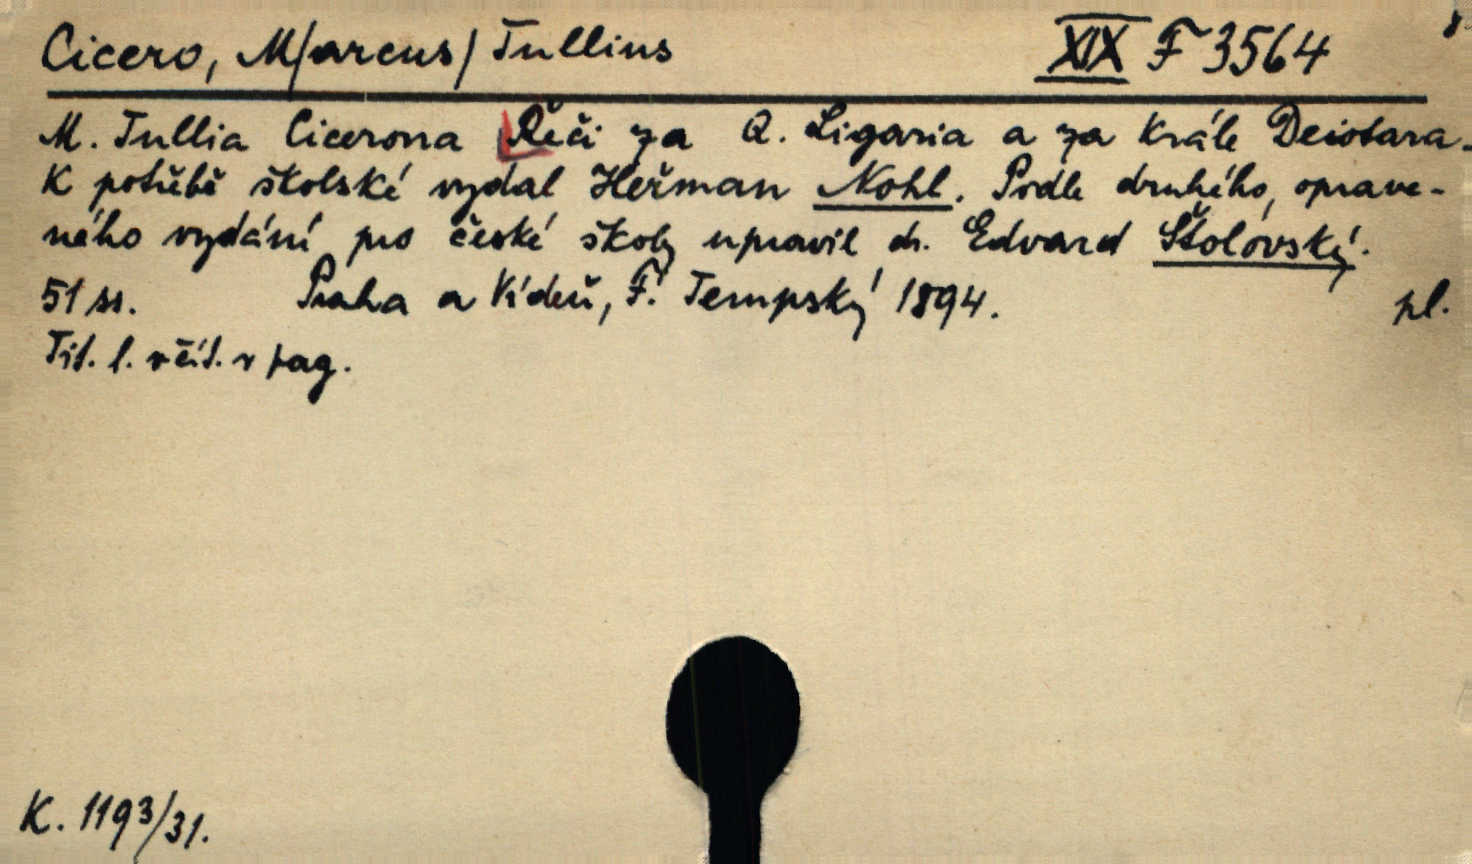 Cicero, M/arcus/ Tullius XIX F 3564
M. Tullia Cicerona Řeči za Q. Ligaria a za krále Deiotara.
K potřebě školské vydal Heřman Nohl. Podle druhého, oprave-
ného vydání pro české školy upravil dr. Edvard Štolovský.
51 ss. Praha a Vídeň, F. Tempský 1894. pl.
Tit. l. včít. v pag.
K. 1193/31.